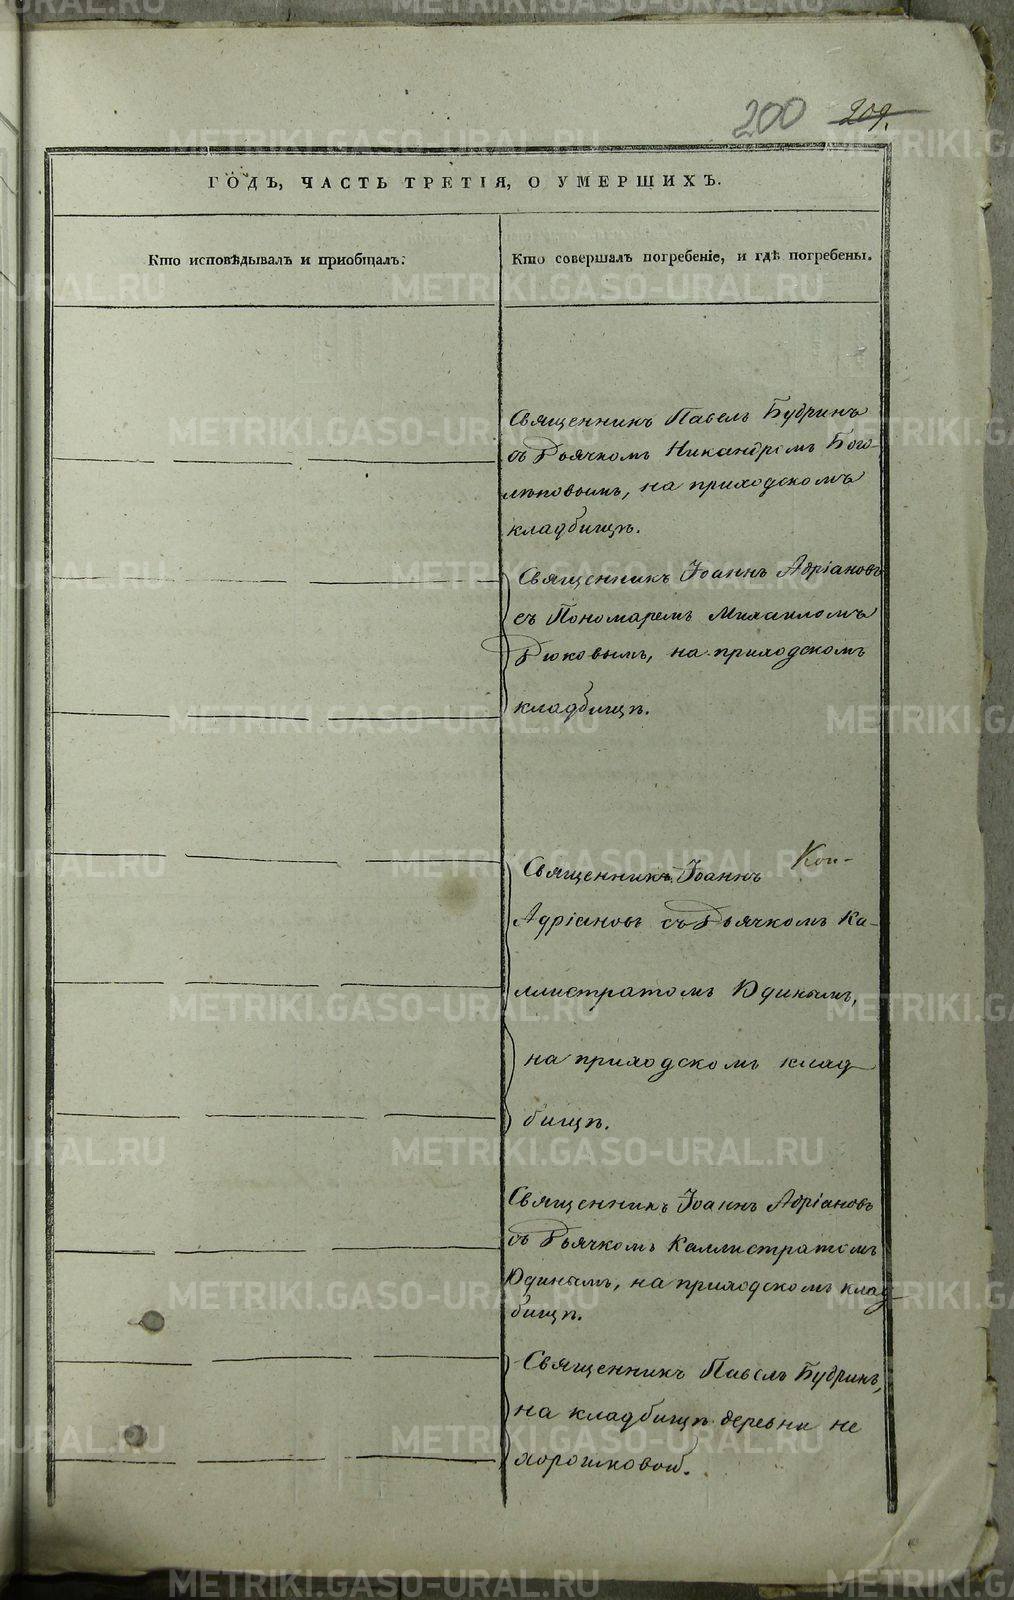 200 209.
ГОДЪ, ЧАСТЬ ТРЕТІЯ, О УМЕРШИХЪ.
Кто исповѣдывалъ и пріобщалъ:
Кто совершалъ погребеніе, и гдѣ погребены.
Священникъ Павелъ Будринъ
съ Дьячкомъ Никандромъ Бого-
лѣповымъ, на приходскомъ
кладбищѣ.
Священникъ Іоаннъ Адріановъ
съ Пономаремъ Михаиломъ
Дюковымъ, на приходскомъ
кладбищѣ.
Священникъ Іоаннъ
Адріановъ съ Дьячкомъ Ка-
ллистратомъ Юдинымъ,
на приходскомъ клад
бищѣ.
Священникъ Іоаннъ Адріановъ
съ Дьячкомъ Каллистратомъ
Юдинымъ, на приходскомъ клад
бищѣ.
Священникъ Павелъ Будринъ,
на кладбищѣ деревни Не
хорошковой.
METRIKI.GASO-URAL.RU